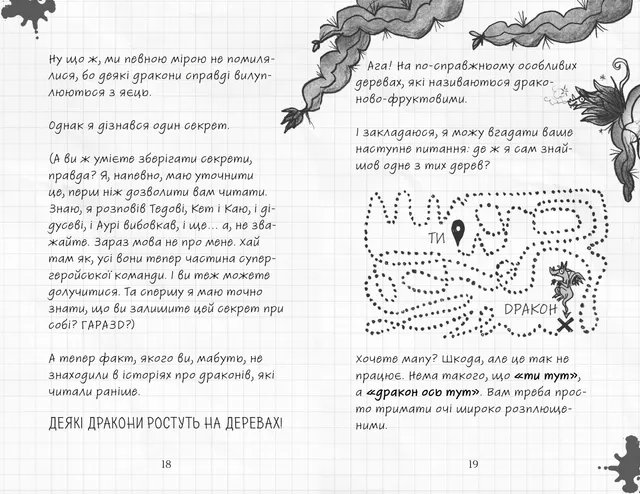 Ну що ж, ми певною мірою не помили-
лися, бо деякі дракони справді вилуп-
люються з яєць.
Однак я дізнався один секрет.
(А ви ж умієте зберігати секрети,
правда? Я, напевно, маю уточнити
це, перш ніж дозволити вам читати.
Знаю, я розповів Тедові, Кет і Каю, і ді-
дусеві, і Аурі вибовкав, і ще... а, не зва-
жайте. Зараз мова не про мене. Хай
там як, усі вони тепер частина супер-
геройської команди. І ви теж можете
долучитися. Та спершу я маю точно
знати, що ви залишите цей секрет при
собі? ГАРАЗД?)
А тепер факт, якого ви, мабуть, не
знаходили в історіях про драконів, які
читали раніше.
ДЕЯКІ ДРАКОНИ РОСТУТЬ НА ДЕРЕВАХ!
18
Ага! На по-справжньому особливих
деревах, які називаються драко-
ново-фруктовими.
І закладаюся, я можу вгадати ваше
наступне питання: де ж я сам знай-
шов одне з тих дерев?
ТИ
ДРАКОН
Хочете мапу? Шкода, але це так не
працює. Нема такого, що «ти тут»,
а «дракон ось тут». Вам треба прос-
то тримати очі широко розплюще-
ними.
19